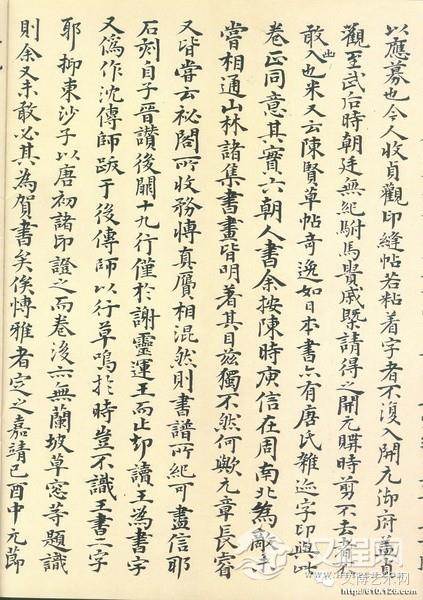 以應募也今人收貞觀印縫帖若粘着字者不復入開元御府蓋貞
觀至武后時朝廷無紀駙馬貴戚請得之開元購時剪不去者不
敢以入也米又云陳賢草帖奇逸如日本書亦有唐氏雜迹字印與此
卷正同意其實六朝人書余按陳時庾信在周南北為敵未
嘗相通山林諸集書畫皆明著其目茲獨不然何歟元章長睿
又皆嘗云祕閣所收務愽真贗相混然則書譜所紀可盡信耶
石刻自子晉讚後闕十九行僅於謝靈運王而止却讀王為書字
又偽作沈傳師跋于後傳師以行草鳴於時豈不識王書二字
耶抑東沙子以唐初諸印證之而卷後亦無蘭坡草窓等題識
則余又未敢必其為賀書矣俟愽雅者定之嘉靖己酉中元節